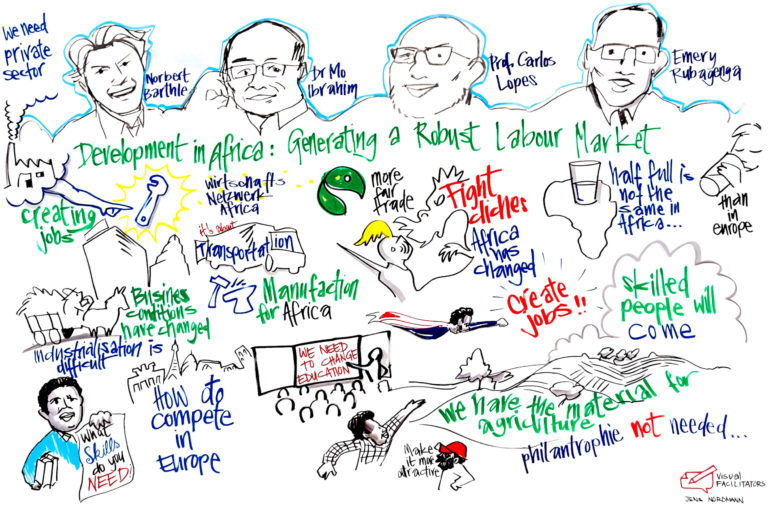 We need
private
sector
Norbert
Barthle
Dr Mo
Ibrahim
Prof. Carlos
Lopes
Emery
Rubagenga
Development in Africa: Generating a Robust Labour Market
creating
jobs
wirtschafts
Netzwerk
Africa
more
fair
trade
Fight
cliches
Africa
has
changed
half full is
not the
same in
Africa...
than
in
europe
it's about
Transportation
Business
conditions
have changed
Industrialisation is
difficult
Manufaction
for Africa
Create
jobs!!
skilled
people will
come
WE NEED
TO CHANGE
EDUCATION
How to
compete
in
Europe
What
skills
do you
NEED!
We have the material for
agriculture
philantrophie not needed...
Make
it more
attractive
VISUAL
FACILITATORS
JENS NORDMANN